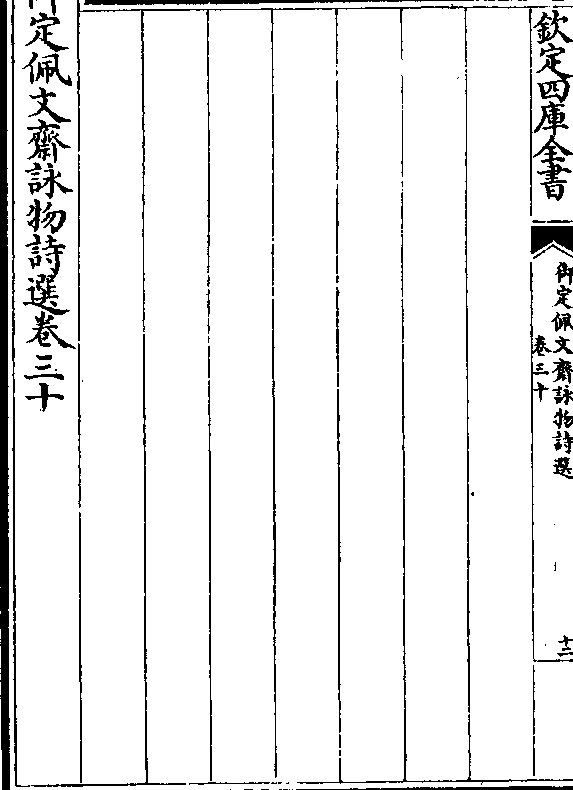 欽定四庫全書
御定佩文齋詠物詩選
卷三十
十二
御定佩文齋詠物詩選卷三十